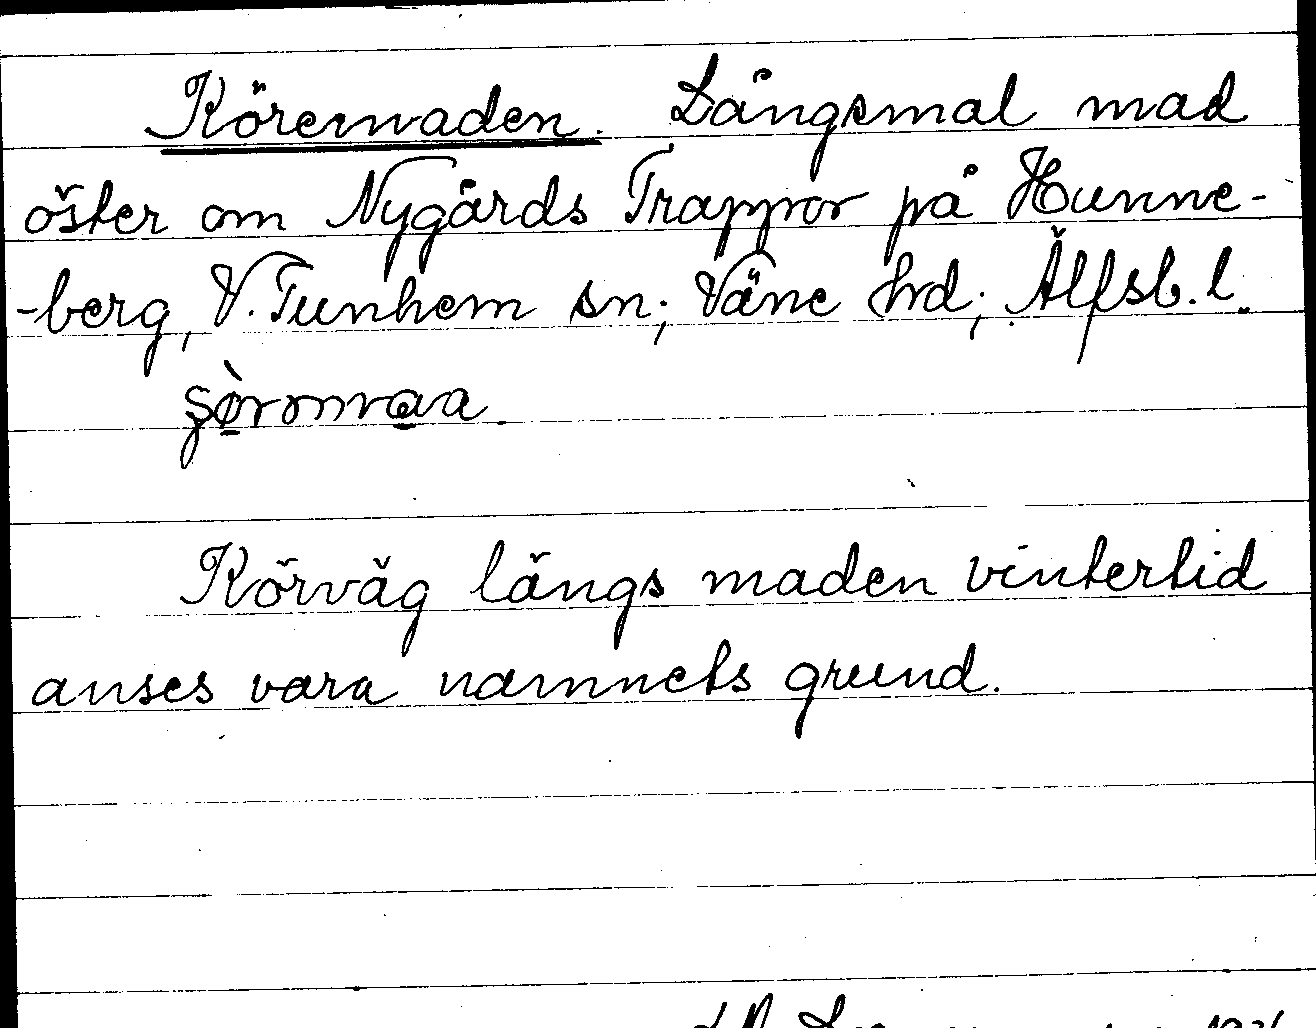 Köremaden. Långsmal mad
öster om Nygårds Trappor på Hunne-
-berg, V. Tunhem sn; Väne hd; Älfsb. l.
Körväg längs maden vintertid
anses vara namnets grund.